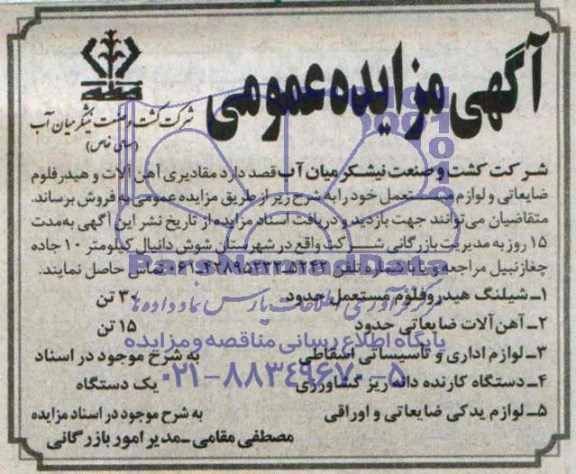 آگهی مزایده عمومی
شرکت کشت و صنعت نیشکر میان آب
(سهامی خاص)
شرکت کشت و صنعت نیشکر میان آب قصد دارد مقادیری آهن آلات و هیدروفلوم
ضایعاتی و لوازم مستعمل خود را به شرح زیر از طریق مزایده عمومی به فروش برساند.
متقاضیان می‌توانند جهت بازدید و دریافت اسناد مزایده از تاریخ نشر این آگهی به مدت
۱۵ روز به مدیریت بازرگانی شرکت واقع در شهرستان شوش دانیال کیلومتر ۱۰ جاده
چغازنبیل مراجعه و یا با شماره تلفن ۰۶۱-۴۲۸۹۵۲۳۲ تماس حاصل نمایند.
۱ـ شیلنگ هیدروفلوم مستعمل حدود ۳۰ تن
۲ـ آهن آلات ضایعاتی حدود ۱۵ تن
۳ـ لوازم اداری و تاسیساتی اسقاطی به شرح موجود در اسناد
۴ـ دستگاه کارنده دانه ریز کشاورزی یک دستگاه
۵ـ لوازم یدکی ضایعاتی و اوراقی به شرح موجود در اسناد مزایده
مصطفی مقامی ـ مدیر امور بازرگانی
ParsNamadData
مرکز فرآوری اطلاعات پارس نماد داده ها
پایگاه اطلاع رسانی مناقصه و مزایده
۰۲۱-۸۸۳۴۹۶۷۰-۵